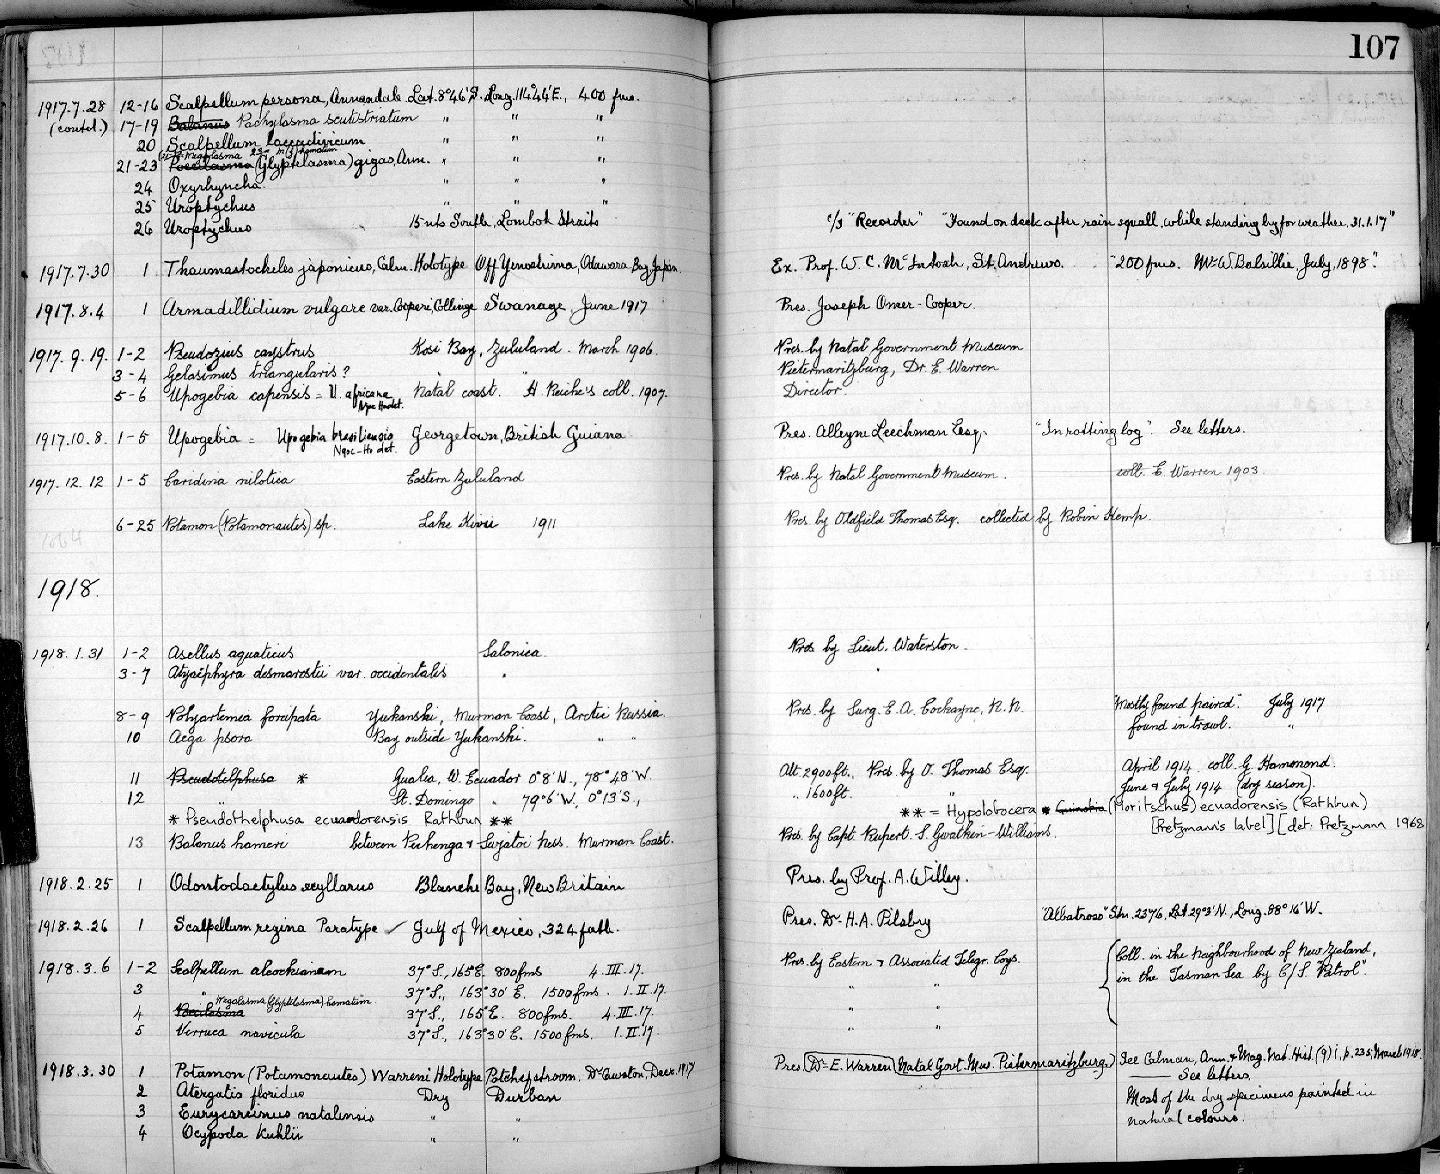 107
1917.7.28 12-16 Scalpellum persona, Annandale Lat. 8°46'S. Long. 114°44'E., 400 fms.
(contd.) 17-19 Balanus Pachylasma scutistriatum " " "
20 Scalpellum laccadivicum " " "
21-23 Poecilasma (Glyptelasma) gigas, Ann. " " "
24 Oxyrhyncha " " "
25 Uroptychus " " "
26 Uroptychus 15 mls South, Lombok Straits c/s "Recorder" "Found on deck after rain squall, while standing by for weather, 31.1.17"
1917.7.30 1 Thaumastocheles japonicus, Calm. Holotype Off Yenoshima, Odawara Bay, Japan. Ex. Prof. W. C. McIntosh, St. Andrews. "200 fms. Mr W. Balsillie, July, 1898".
1917.8.4 1 Armadillidium vulgare var. Cooperi, Collinge Swanage, June 1917 Pres. Joseph Omer-Cooper.
1917.9.19. 1-2 Pseudozius caystrus Kosi Bay, Zululand. March 1906. Pres. by Natal Government Museum
3-4 Gelasimus triangularis? " Pietermaritzburg, Dr. E. Warren
5-6 Upogebia capensis = U. africana Natal coast. H Reiche's coll. 1907. Director.
Ngoc-Ho det.
1917.10.8. 1-5 Upogebia = Upogebia brasiliensis Georgetown, British Guiana Pres. Alleyne Leechman Esq. "In rotting log". See letters.
Ngoc-Ho det.
1917.12.12 1-5 Caridina nilotica Eastern Zululand Pres. by Natal Government Museum. coll. E. Warren 1903.
6-25 Potamon (Potamonautes) sp. Lake Kivu 1911 Pres. by Oldfield Thomas Esq. collected by Robin Kemp.
1918.
1918.1.31 1-2 Asellus aquaticus Salonica. Pres by Lieut. Waterston.
3-7 Atyaephyra desmarestii var. occidentalis "
8-9 Polyartemia forcipata Yukanski, Murman Coast, Arctic Russia. Pres. by Surg. E. A. Cockayne, R.N. "Mostly found paired". July 1917
10 Aega psora Bay outside Yukanski. " " found in trawl. "
11 Pseudotelphusa * Gualea, W. Ecuador 0°8'N., 78°48'W. Alt. 2900ft., Pres by O. Thomas Esq. April 1914 coll. G Hammond.
12 " St. Domingo " 79°6'W., 0°13'S., " 1600ft. " June & July 1914 (dry season).
* Pseudothelphusa ecuadorensis Rathbun ** ** = Hypolobocera * (Moritschus) ecuadorensis (Rathbun)
[Pretzmann's label] [det. Pretzmann 1968
13 Balanus hameri between Pechenga & Navolok Ness. Murman Coast. Pres. by Capt. Rupert. S. Gwatkin-Williams.
1918.2.25 1 Odontodactylus scyllarus Blanche Bay, New Britain Pres. by Prof. A. Willey.
1918.2.26 1 Scalpellum regina Paratype ✓ Gulf of Mexico, 324 fath. Pres. Dr. H.A. Pilsbry "Albatross" Stn. 2376, Lat 29°3'N., Long. 88°16'W.
1918.3.6 1-2 Scalpellum alcockianum 37°S., 165°E. 800fms 4.III.17. Pres. by Eastern & Associated Telegr. Coys. Coll. in the neighbourhood of New Zealand,
3 " 37°S., 163°30'E. 1500fms. 1.II.17 " " in the Tasman Sea by C/S "Patrol".
Megalasma (Glyptelasma) hamatum
4 Poecilasma 37°S., 165°E. 800fms. 4.III.17. " "
5 Verruca navicula 37°S., 163°30'E. 1500fms. 1.II.17. " "
1918.3.30 1 Potamon (Potamonautes) Warreni Holotype Potchefstroom, Dr. Cawston, Decr. 1917 Pres. (Dr. E. Warren) Natal Govt. Mus. Pietermaritzburg.) See Calman, Ann. & Mag. Nat. Hist. (9) i, p. 235, March 1918.
See letters.
2 Atergatis floridus Dry Durban Most of the dry specimens painted in
3 Eurycarcinus natalensis " " natural colours.
4 Ocypoda Kuhlii " "